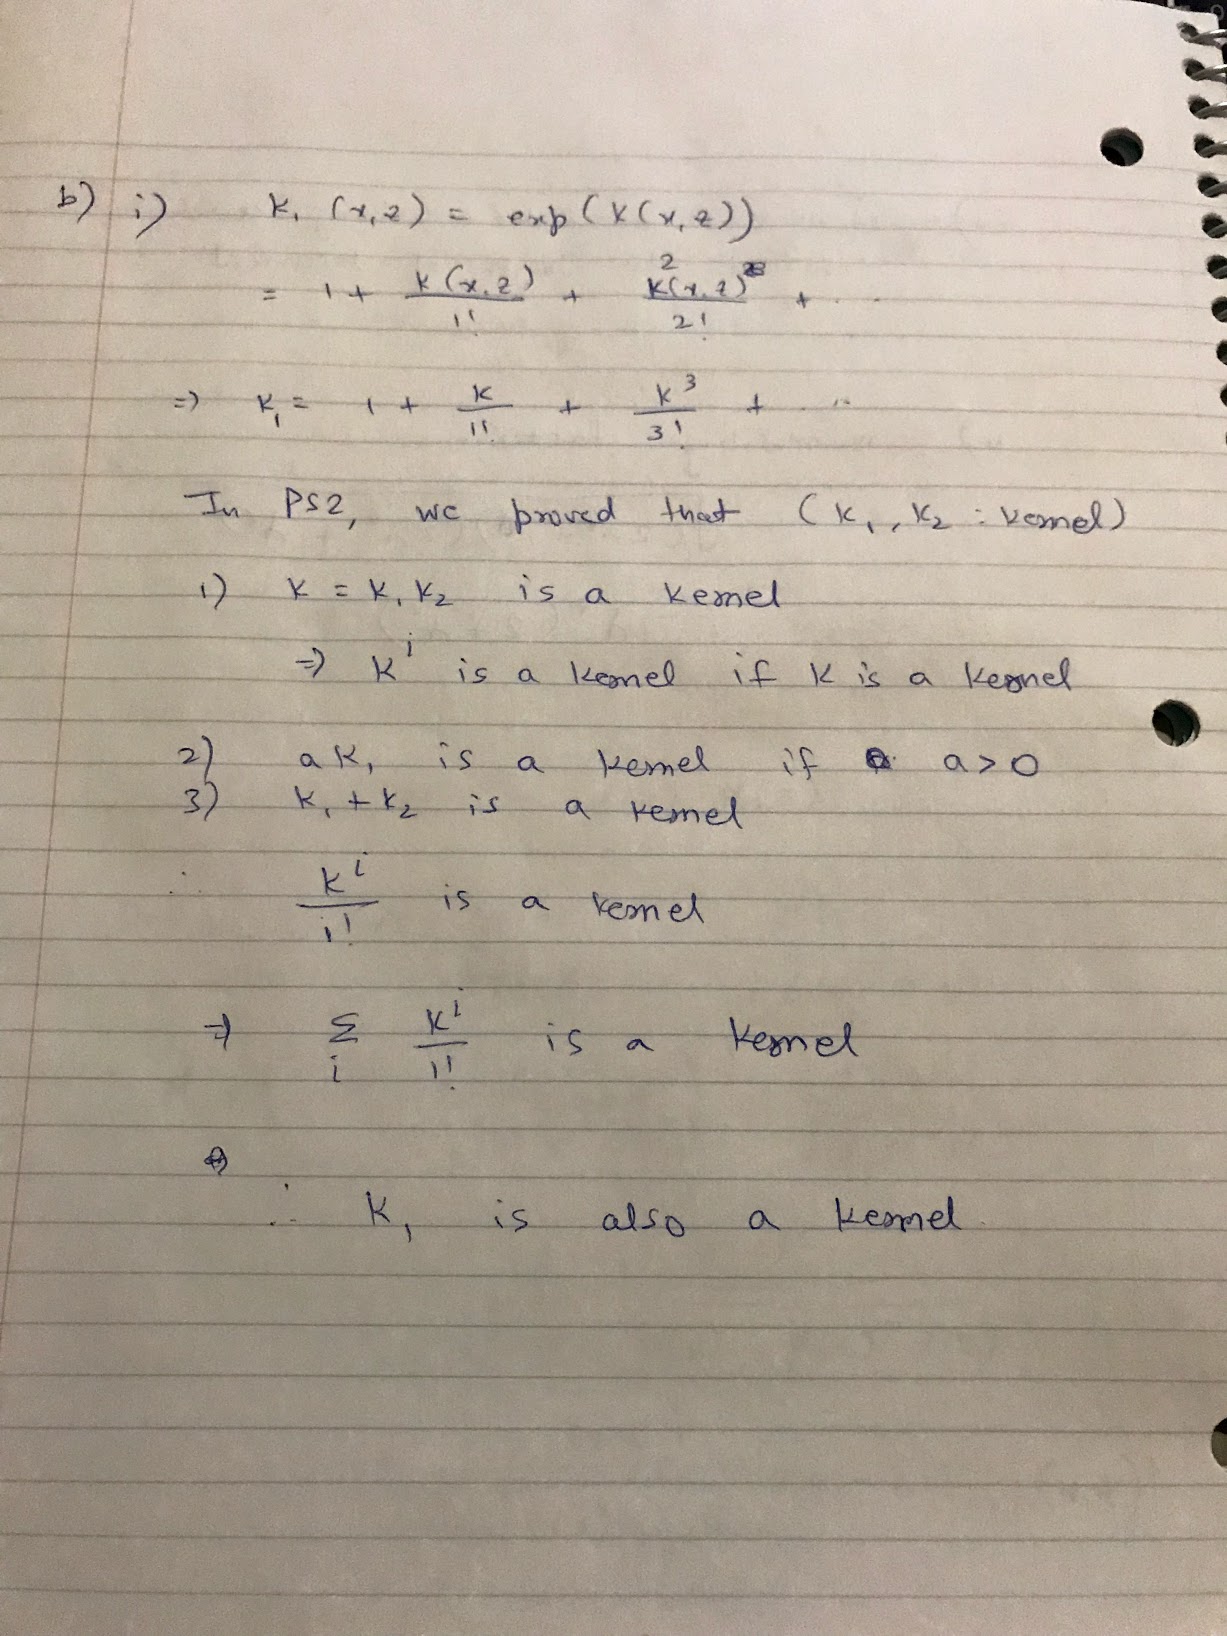 b) i) K₁ (x,z) = exp(K(x,z))
= 1 + K(x,z)/1! + K²(x,z)/2! + ...
=> K₁ = 1 + K/1! + K³/3! + ...
In PS2, we proved that (K₁, K₂ : kernel)
1) K = K₁K₂ is a kernel
=> Kⁱ is a kernel if K is a kernel
2) aK₁ is a kernel if a > 0
3) K₁ + K₂ is a kernel
∴ Kⁱ/i! is a kernel
=> Σᵢ Kⁱ/i! is a kernel
∴ K₁ is also a kernel.